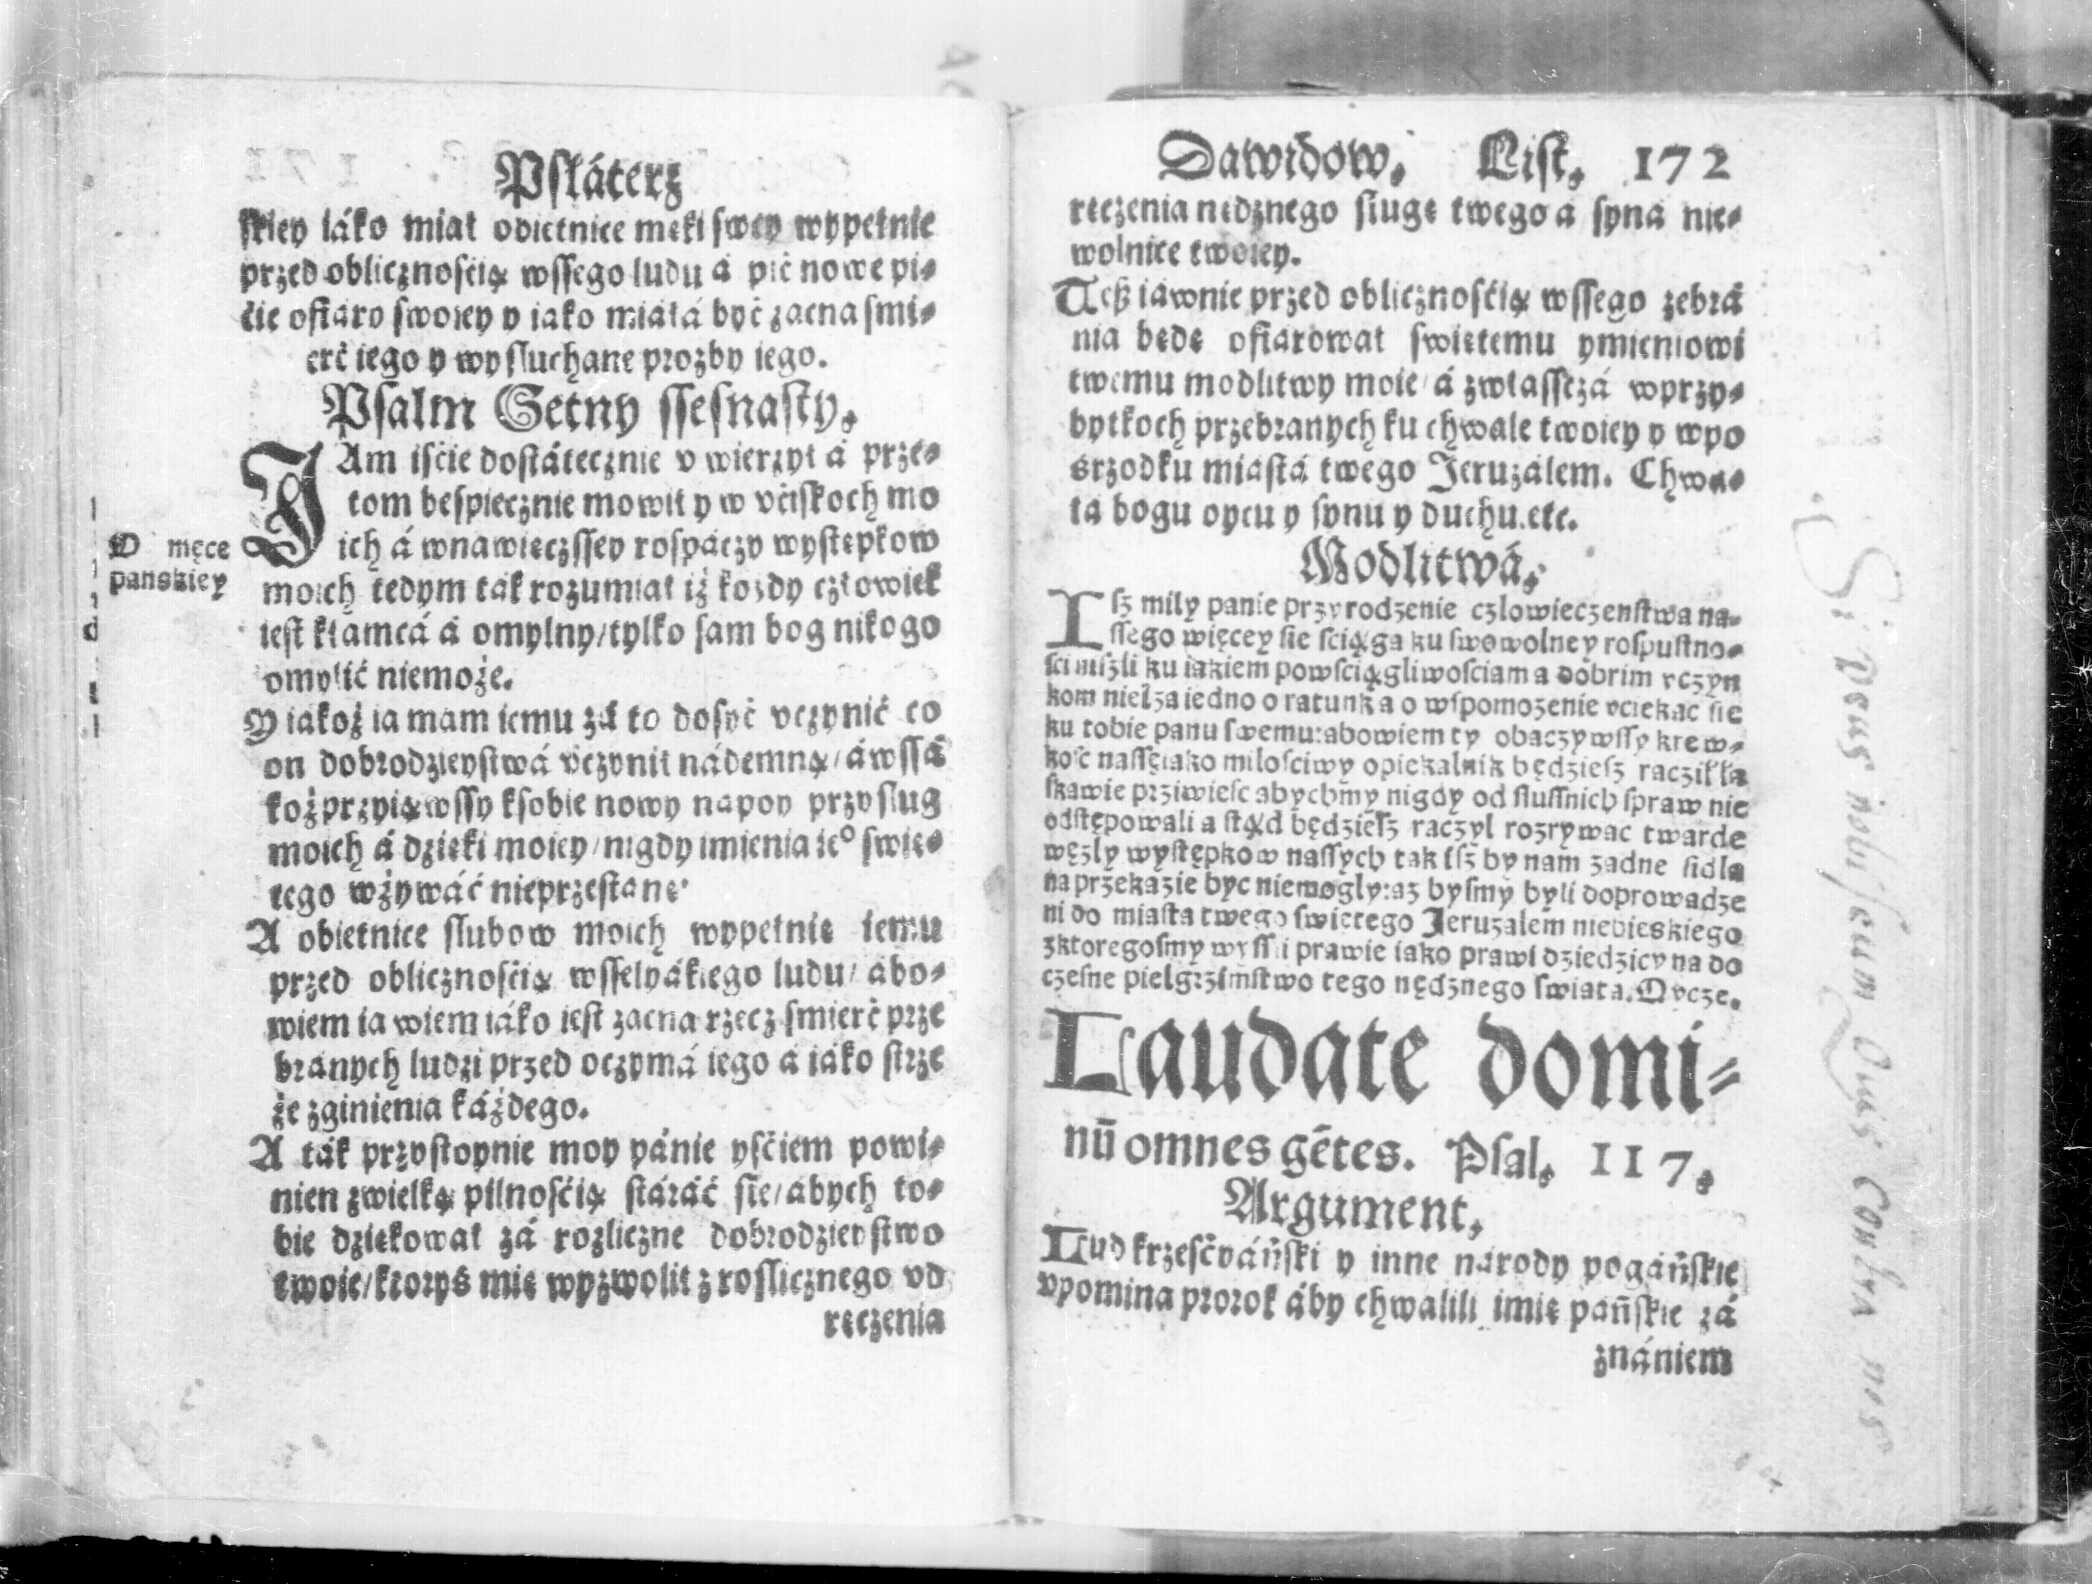 Psláterz
skiey iáko miał obietnice męki swey wypełnić
przed oblicznosćią wssego ludu á pić nowe pi-
ćie ofiary swoiey y iako miáłá być zacna smi-
erć iego y wysluchane prozby iego.
Psalm Setny ssesnasty.
IAm isćie dostátecznie v wierzył á prze-
tom bespiecznie mowił y w vćiskoch mo
ich á wnawięczssey rospaczy występkow
moich tedym ták rozumiał iż kożdy człowiek
iest kłamcá á omylny/tylko sam bog nikogo
omylić niemoże.
O męce
panskiey
Y iakoż ia mam iemu zá to dosyć vczynić co
on dobrodzieystwá vczynił nádemną/áwssá
koż przyiąwssy ksobie nowy napoy przyslug
moich á dzięki moiey/nigdy imienia ieº swię-
tego wżywáć nieprzestanę
A obietnice slubow moich wypełnię iemu
przed oblicznosćią wsselyákiego ludu/ ábo-
wiem ia wiem iáko iest zacna rzecz smierć prze
branych ludzi przed oczymá iego á iáko strze
że zginienia káżdego.
A ták przystoynie moy pánie ysćiem powi-
nien zwielką pilnosćią stáráć się/abych to-
bie dziękował zá rozliczne dobrodzieystwo
twoie/ktorys mię wyzwolił z roslicznego vd
ręczenia
Dawidow. List. 172
ręczenia nędznego slugę twego á syná nie-
wolnice twoiey.
Teß iáwnie przed oblicznosćią wssego zebrá
nia będę ofiarował swiętemu ymieniowi
twemu modlitwy moie/á zwłassczá wprzy-
bytkoch przebranych ku chwale twoiey y wpo
srzodku miastá twego Jeruzalem. Chwa-
ła bogu oycu y synu y duchu.etc.
Modlitwá.
Isz mily panie przyrodzenie czlowieczenstwa na-
ssego więcey sie sciąga ku swowolney rospustno-
sci niszli ku iakiem powsciągliwosciam a dobrim vczyn
kom nielza iedno o ratunk a o wspomozenie vciekac sie
ku tobie panu swemu:abowiem ty obaczywssy krew-
kosc nassę iako milosciwy opiekalnik będziesz raczil la
skawie prziwiesc abychmy nigdy od slussnich spraw nie
odstępowali a stąd będziesz raczyl rozrywac twarde
węzly występkow nassych tak isz by nam zadne sidla
na przekazie byc niemogly:az bysmy byli doprowadze
ni do miasta twego swiętego Jeruzalem niebieskiego
zktoregosmy wyssli prawie iako prawi dziedzicy na do
czesne pielgrzimstwo tego nędznego swiata. Oycze.
Laudate domi-
nū omnes gētes. Psal. 117.
Argument.
Lud krzesćyáński y inne narody pogáńskie
vpomina prorok áby chwalili imię pańskie zá
znániem
Si Deus nobiscum Quis contra nos